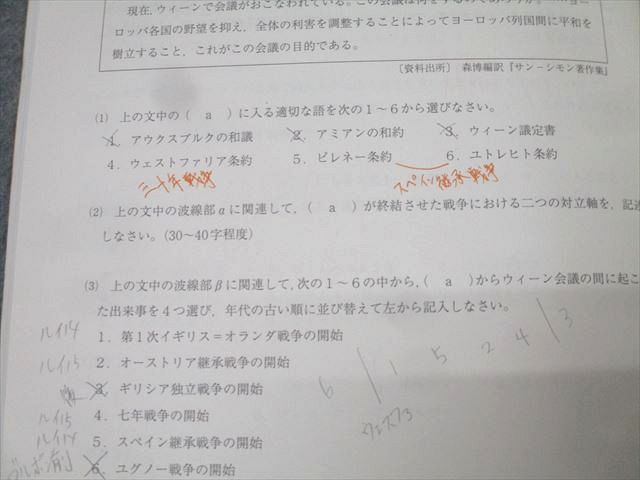 現在,ウィーンで会議がおこなわれている。この会議は何をするのであろうか。……ヨー
ロッパ各国の野望を抑え,全体の利害を調整することによってヨーロッパ列国間に平和を
樹立すること,これがこの会議の目的である。
〔資料出所〕 森博編訳『サン-シモン著作集』
(1) 上の文中の( a )に入る適切な語を次の1~6から選びなさい。
1. アウクスブルクの和議 2. アミアンの和約 3. ウィーン議定書
4. ウェストファリア条約 5. ピレネー条約 6. ユトレヒト条約
三十年戦争 スペイン継承戦争
(2) 上の文中の波線部αに関連して,( a )が終結させた戦争における二つの対立軸を,記述
しなさい。(30~40字程度)
(3) 上の文中の波線部βに関連して,次の1~6の中から,( a )からウィーン会議の間に起こ
た出来事を4つ選び,年代の古い順に並び替えて左から記入しなさい。
ルイ14 1. 第1次イギリス=オランダ戦争の開始
ルイ15 2. オーストリア継承戦争の開始
3. ギリシア独立戦争の開始
ルイ15 4. 七年戦争の開始
ルイ14 5. スペイン継承戦争の開始
ブルボン前 6. ユグノー戦争の開始
6 | 1 5 2 4 | 3
ウェストファ